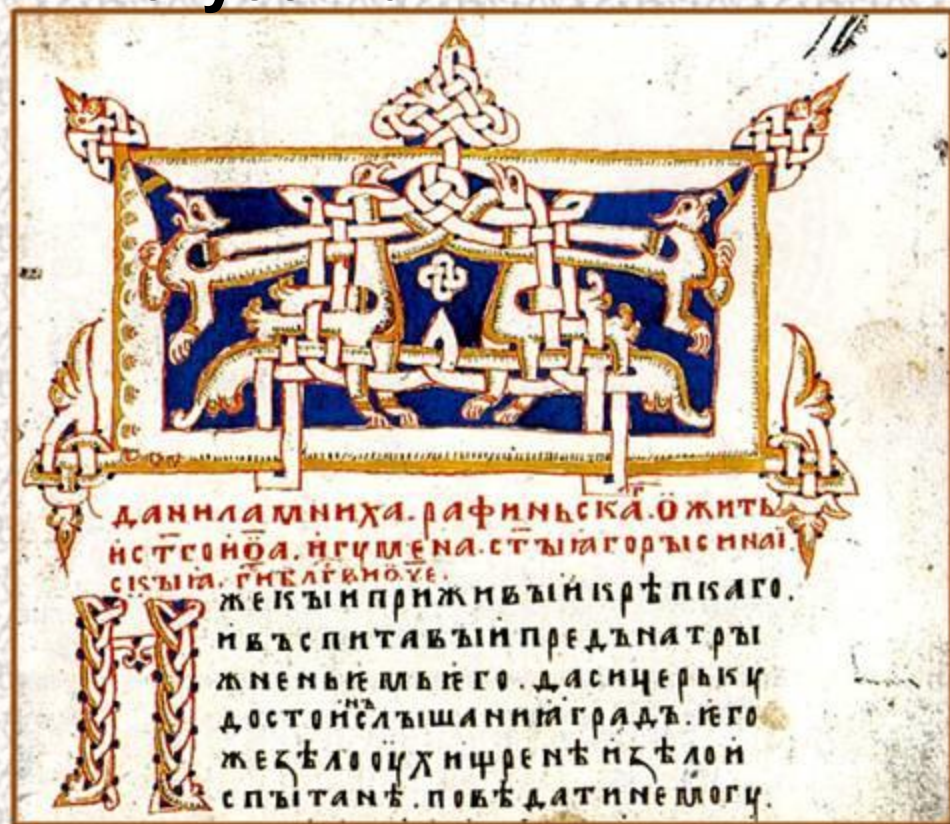 даниламниха.рафиньска.о҅жить
и҆ст҃гоио҃а.и҆гумена.ст҃ъіꙗгоръісинаі
скъіꙗ. гиблг҃вио҃ч҃е.
жекъіиприживъіикрѣпкаго.
ивъспитавъіипредънатръі
жненьѥмьѥго.дасицерькꙋ
достоинъслъішаниꙗградъ.ѥго
жеꙁѣлооухищренѣиꙁѣлои
спъітанѣ.повѣдатинемогꙋ.